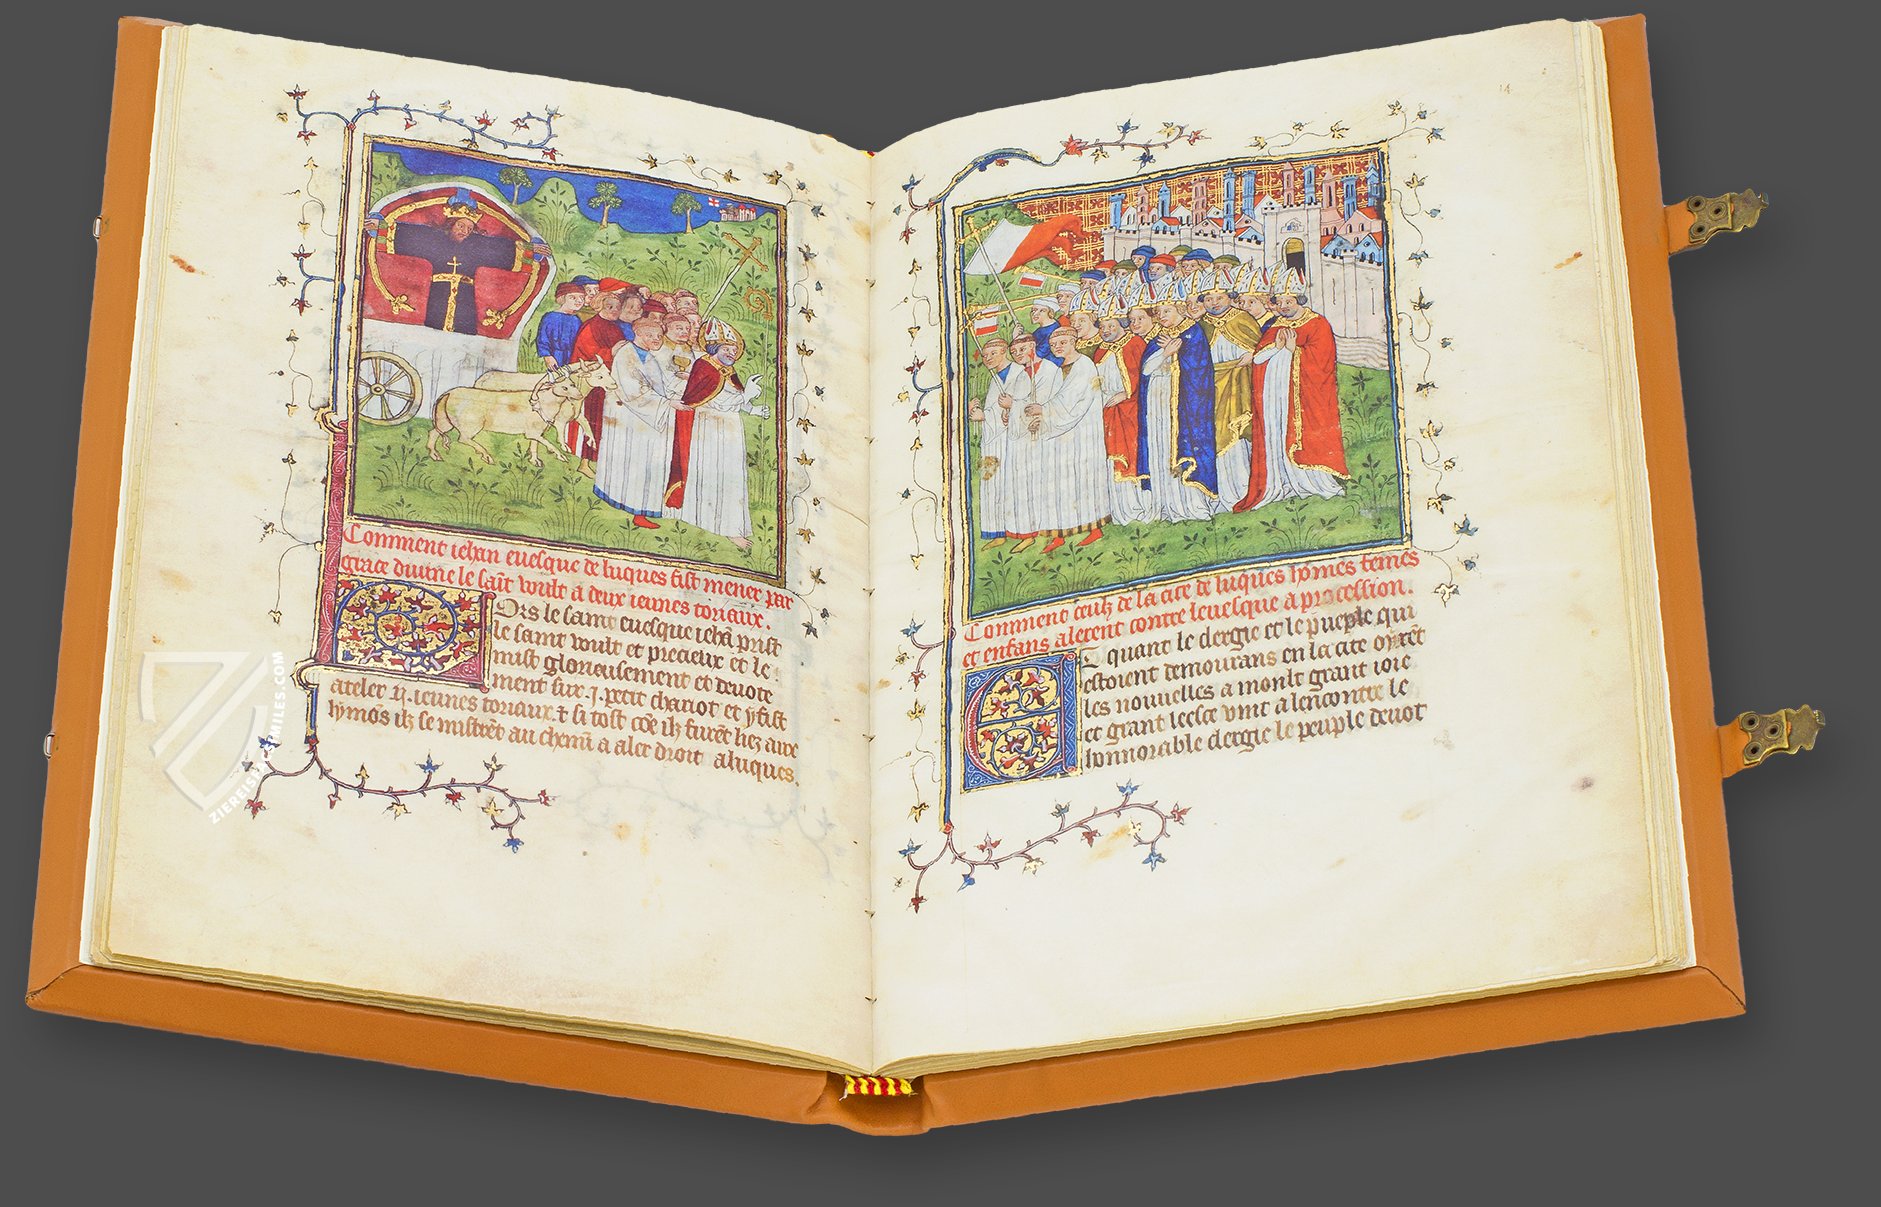 Comment iehan euesque de luques fist mener par
grace diuine le sait voult a deux ieunes toriaux.
Ors le saint euesque iehā prist
le saint voult et precieux et le
mist glorieusement et deuote
ment sur .j. petit chariot et y fist
ateler .ij. ieunes toriaux. τ si tost cōe ilz furēt liez aux
hymōs ilz se mistrēt au chemī a aler droit a luques.
14
Comment ceulz de la cite de luques hōmes femes
et enfans alerent contre leuesque a procession.
Et quant le clergie et le pueple qui
estoient demourans en la cite oyrēt
les nouuelles a moult grant ioie
et grant leesce vint a lencontre le
honnorable clergie le peuple deuot
ZIEREIS FACSIMILES.COM